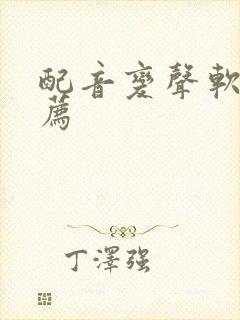 配音變聲軟
薦
丁澤强